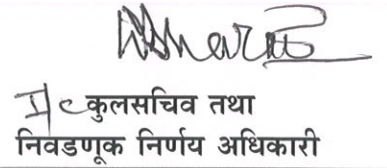 I/c कुलसचिव तथा
निवडणूक निर्णय अधिकारी